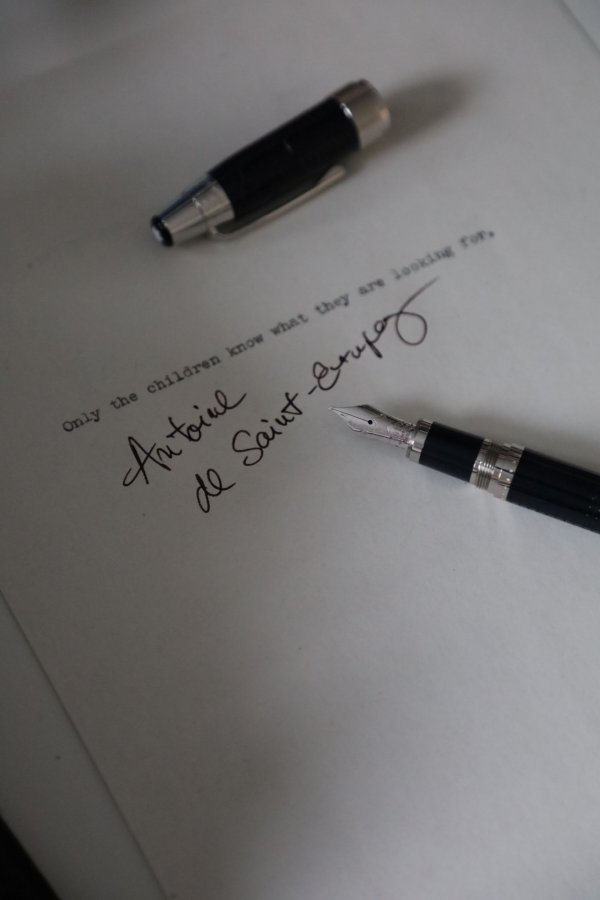 Only the children know what they are looking for.
Antoine
de Saint-Exupéry